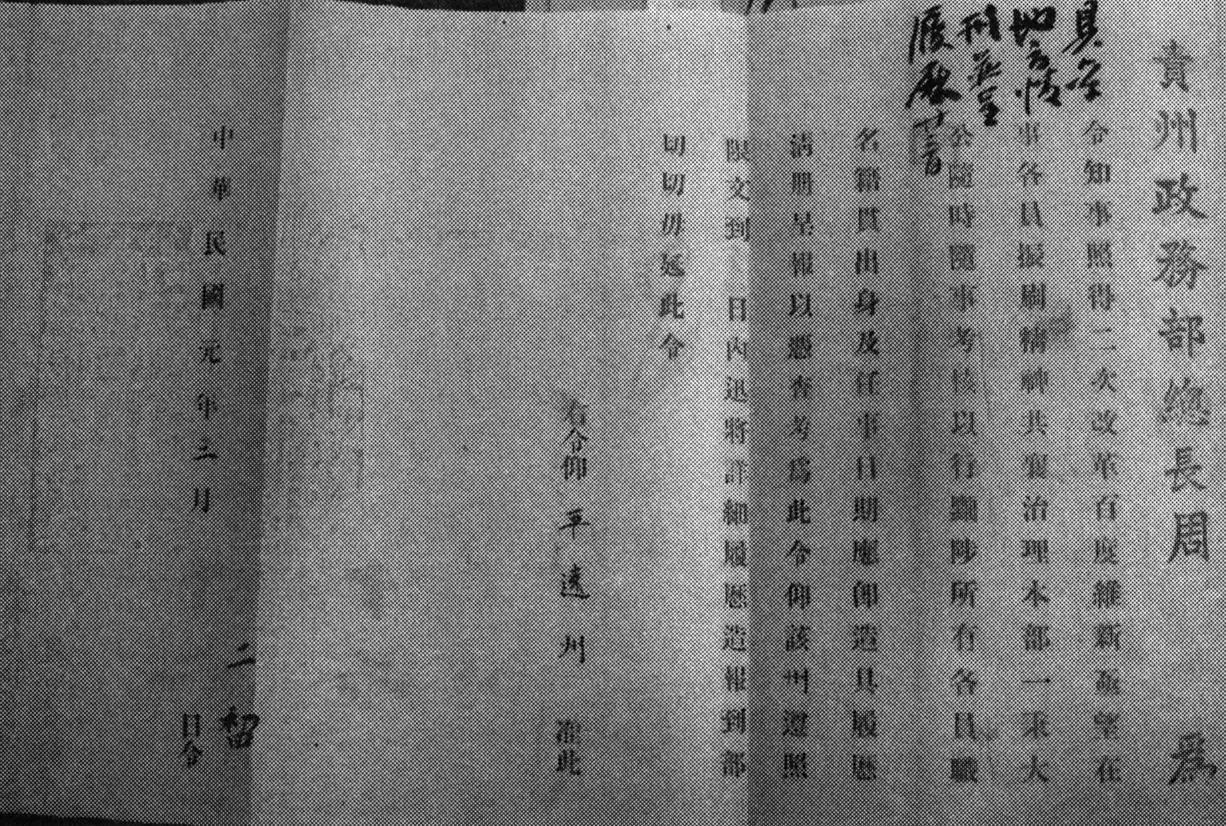 貴州政務部總長周 為
令知事照得二次改革百度維新亟望在
事各員振刷精神共襄治理本部一秉大
公隨時隨事考核以行黜陟所有各員職
名籍貫出身及任事日期應仰造具履歷
清册呈報以憑查考為此令仰該州遵照
限文到 日內迅將詳細履歷造報到部
切切毋延此令
右令仰平遠州 准此
中華民國元年三月 二 日令